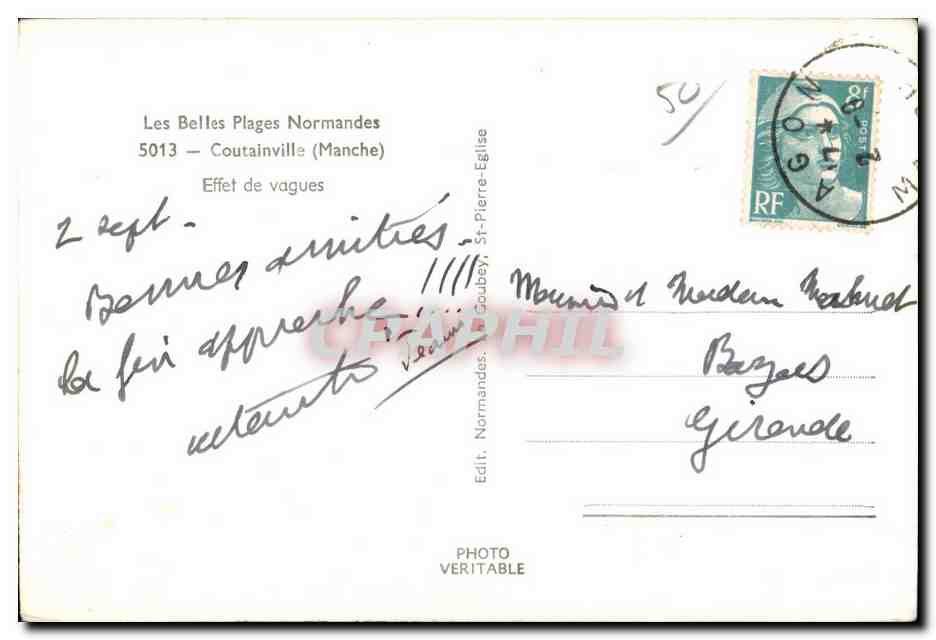 Les Belles Plages Normandes
5013 — Coutainville (Manche)
Effet de vagues
2 sept.
Bonnes amitiés.
la fin approche !!!!
Edit. Normandes. Goubey, St-Pierre-Eglise
50/
8f
POSTES
RF
Monsieur et Madame
Bazas
Gironde
PHOTO
VERITABLE
CPAPHIL